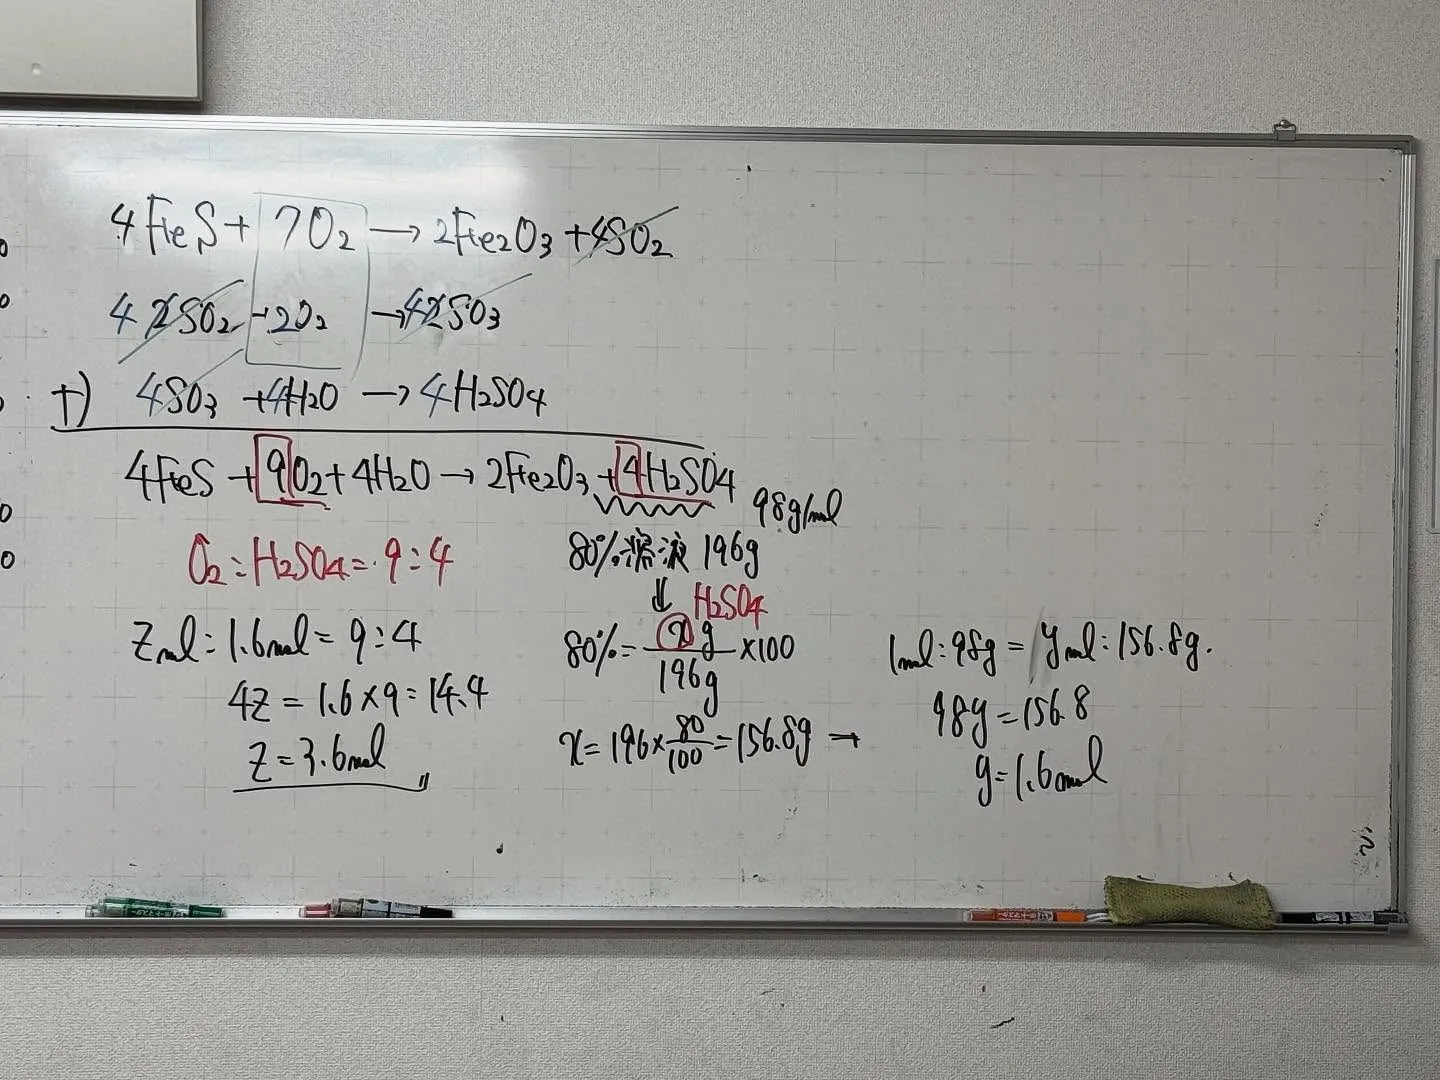 4FeS + 7O₂ → 2Fe₂O₃ + 4SO₂
4 2SO₂ + 2O₂ → 4 2SO₃
+) 4SO₃ + 4H₂O → 4H₂SO₄
4FeS + 9O₂ + 4H₂O → 2Fe₂O₃ + 4H₂SO₄
98g/mol
O₂ : H₂SO₄ = 9 : 4
Zmol : 1.6mol = 9 : 4
4Z = 1.6 × 9 = 14.4
Z = 3.6mol
80%溶液 196g
↓ H₂SO₄
80% = xg/196g × 100
x = 196 × 80/100 = 156.8g →
1mol : 98g = ymol : 156.8g.
98y = 156.8
y = 1.6mol